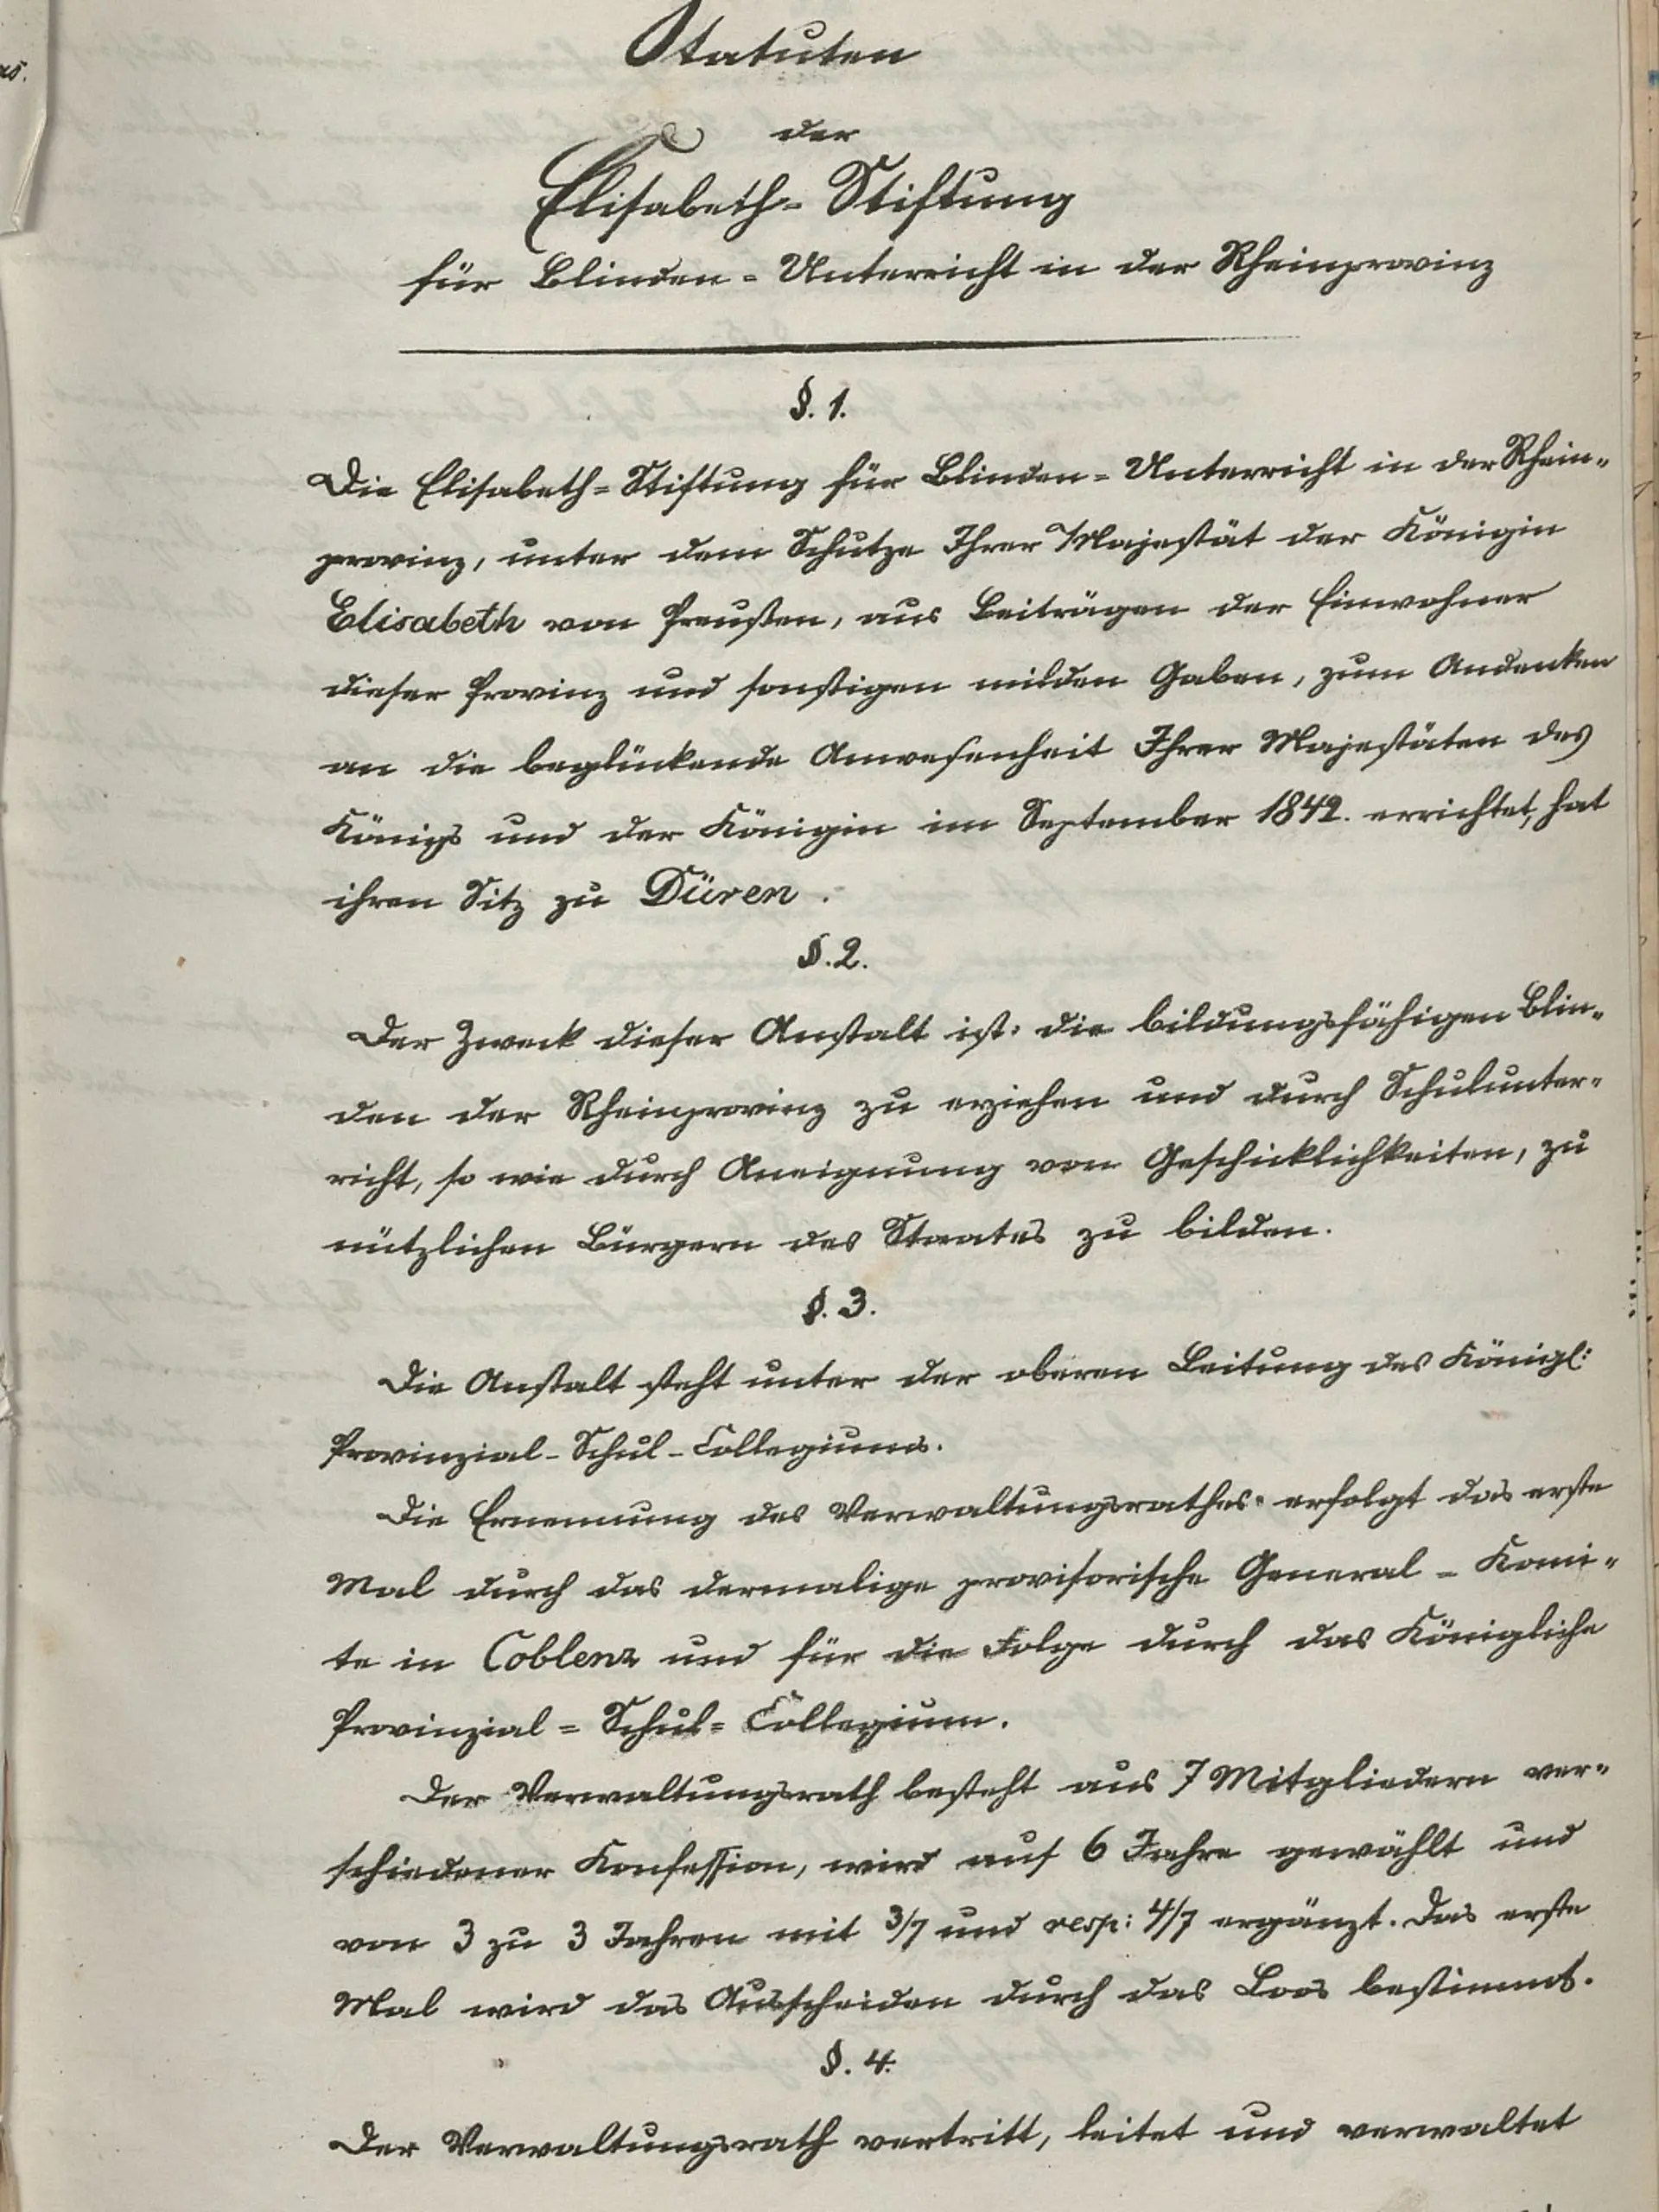 Statuten
der
Elisabeth-Stiftung
für Blinden-Unterricht in der Rheinprovinz
§. 1.
Die Elisabeth-Stiftung für Blinden-Unterricht in der Rhein-
provinz, unter dem Schutze Ihrer Majestät der Königin
Elisabeth von Preußen, aus Beiträgen der Einwohner
dieser Provinz und sonstigen milden Gaben, zum Andenken
an die beglückende Anwesenheit Ihrer Majestäten des
Königs und der Königin im September 1842. errichtet, hat
ihren Sitz zu Düren.
§. 2.
Der Zweck dieser Anstalt ist: die bildungsfähigen Blin-
den der Rheinprovinz zu erziehen und durch Schulunter-
richt, so wie durch Aneignung von Geschicklichkeiten, zu
nützlichen Bürgern des Staates zu bilden.
§. 3.
Die Anstalt steht unter der oberen Leitung des Königl:
Provinzial-Schul-Collegiums.
Die Ernennung des Verwaltungsrathes erfolgt das erste
Mal durch das dermalige provisorische General-Komi-
te in Coblenz und für die Folge durch das Königliche
Provinzial-Schul-Collegium.
Der Verwaltungsrath besteht aus 7 Mitgliedern ver-
schiedener Konfession, wird auf 6 Jahre gewählt und
von 3 zu 3 Jahren mit 3/7 und resp: 4/7 ergänzt. Das erste
Mal wird das Ausscheiden durch das Loos bestimmt.
§. 4.
Der Verwaltungsrath vertritt, leitet und verwaltet